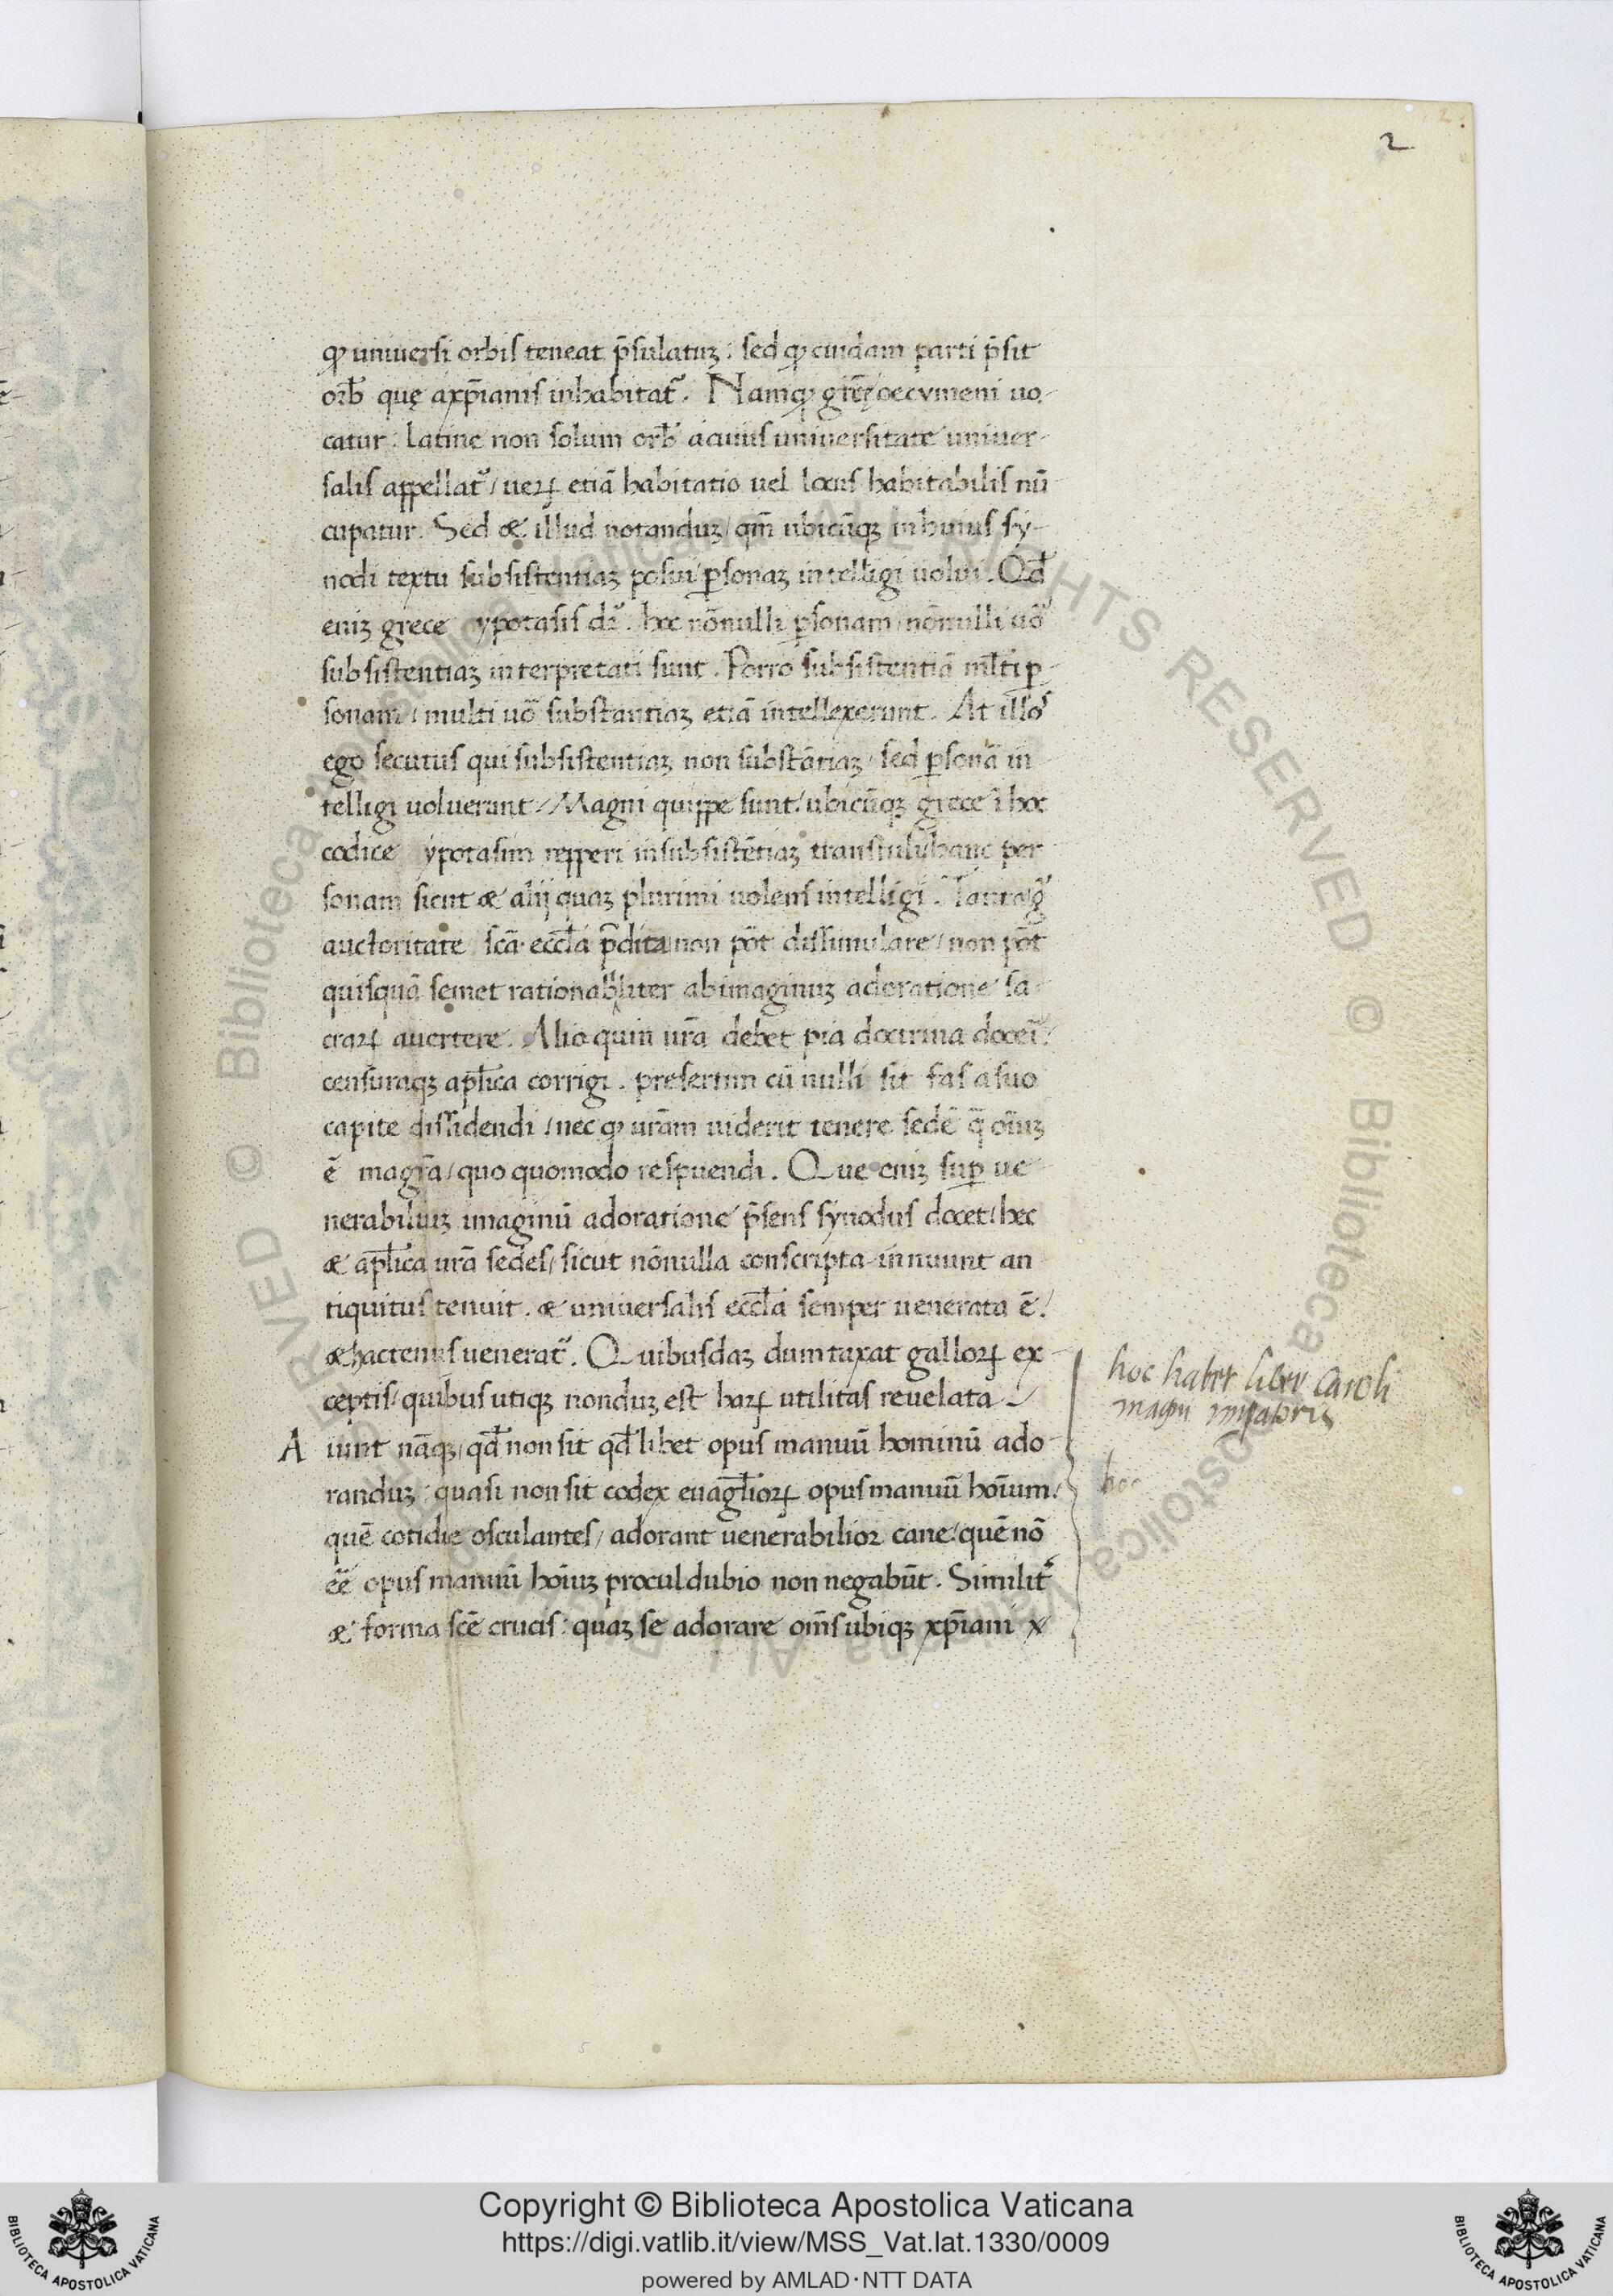 2
ꝙ uniuersi orbis teneat p̄sulatuꝫ: sed ꝙ cuidam parti p̄sit
orƀ quę axp̄ianis inhabitat᷑. Namꝙ grēcę oecumeni uo-
catur: latine non solum orƀ acuius uniuersitate uniuer-
salis appellat᷑/ ueꝝ etiā habitatio uel locus habitabilis nū
cupatur. Sed æ illud notanduꝫ/ qm̄ ubicūqꝫ inhuius sy-
nodi textu subsistentiaꝫ posui/ ꝑsonaꝫ intelligi uolui. Qd̄
eniꝫ grece ypotasis dr̄. hoc nōnulli ꝑsonam/ nōnulli uō
subsistentiaꝫ interpretati sunt. Porro subsistentiā ml̄ti ꝑ-
sonam/ multi uō substantiaꝫ etiā intellexerunt. At illos
ego secutus qui subsistentiaꝫ non substātiaꝫ/ sed ꝑsonā in
telligi uoluerunt/ Magni quippe sunt/ ubicūqꝫ grece ī hoc
codice ypotasim repperi insubsistētiaꝫ transtuly/ hanc per
sonam sicut æ alij quaꝫ plurimi uolens intelligi. Tanta g̊
auctoritate scā eccl̄a p̄dita non pōt dissimulare/ non pōt
quisquā semet rationabiliter abimaginuꝫ adoratione sa-
craꝝ auertere. Alioquin ur̄a debet pia doctrina docer̄i.
censuraqꝫ apl̄ica corrigi. presertim cū nulli sit fas asuo
capite dissidendi/ nec ꝙ ur̄am uiderit tenere sedē q̄ oīuꝫ
ē magr̄a/ quo quomodo respuendi. Que eniꝫ suꝑ ue-
nerabiliuꝫ imaginū adoratione p̄sens synodus docet/ hec
æ apl̄ica ur̄a sedes/ sicut nōnulla conscripta innuunt an
tiquitus tenuit. æ uniuersalis eccl̄a semper uenerata ē/
æhactenus uenerat᷑. Quibusdaꝫ dumtaxat galloꝝ ex-
ceptis/ quibus utiqꝫ nonduꝫ est haꝝ utilitas reuelata
A iunt nāqꝫ/ qd̄ non sit qd̄libet opus manuū hominū ado-
randuꝫ: quasi non sit codex euāgl̄ioꝝ opus manuū hoīum/
quē cotidie osculantes/ adorant uenerabilior cane/ quē nō
eē opus manuū hoīuꝫ proculdubio non negabūt. Similit᷑
æ forma scē crucis: quaꝫ se adorare om̄s ubiqꝫ xp̄iani x
hoc habet liber Caroli
magni imꝑatoris
hoc
Copyright © Biblioteca Apostolica Vaticana
https://digi.vatlib.it/view/MSS_Vat.lat.1330/0009
powered by AMLAD·NTT DATA
BIBLIOTECA APOSTOLICA VATICANA
BIBLIOTECA APOSTOLICA VATICANA